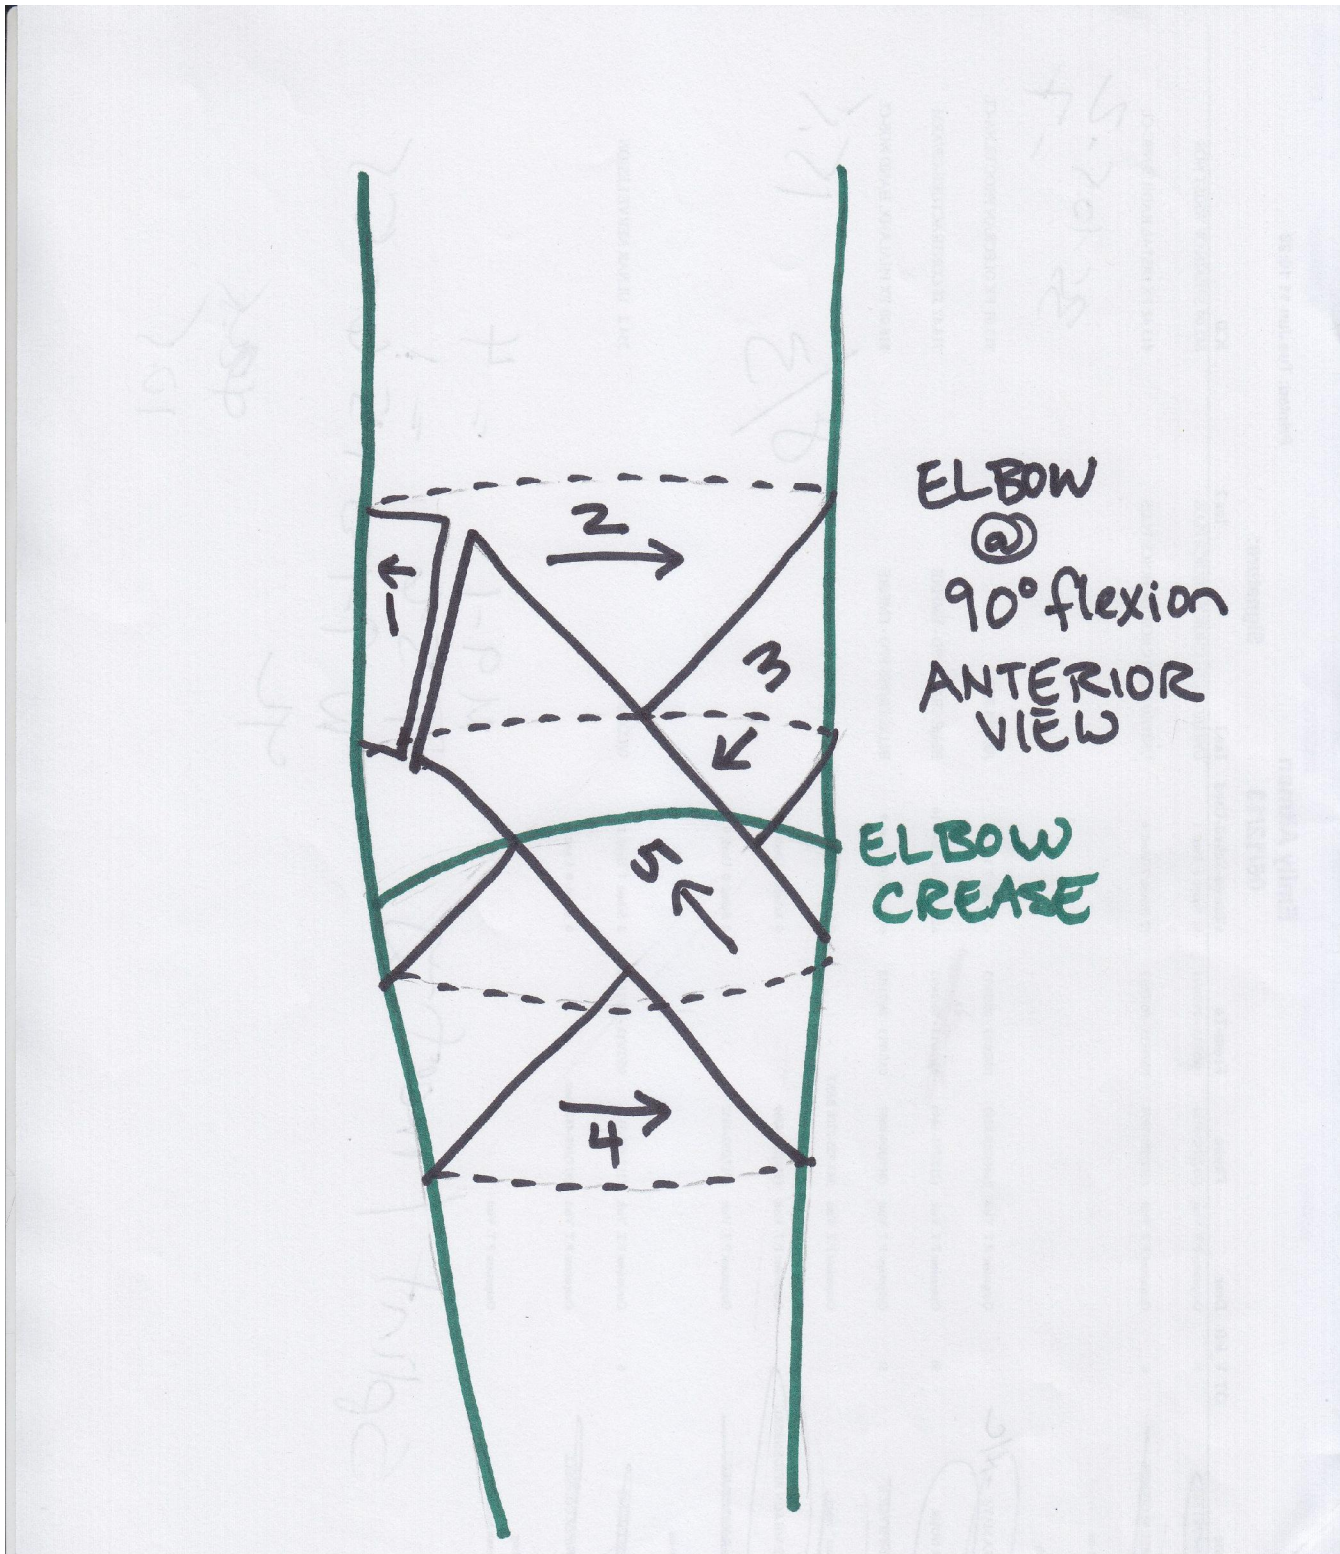 ELBOW
@
90° flexion
ANTERIOR
VIEW
ELBOW
CREASE
1
2
3
5
4